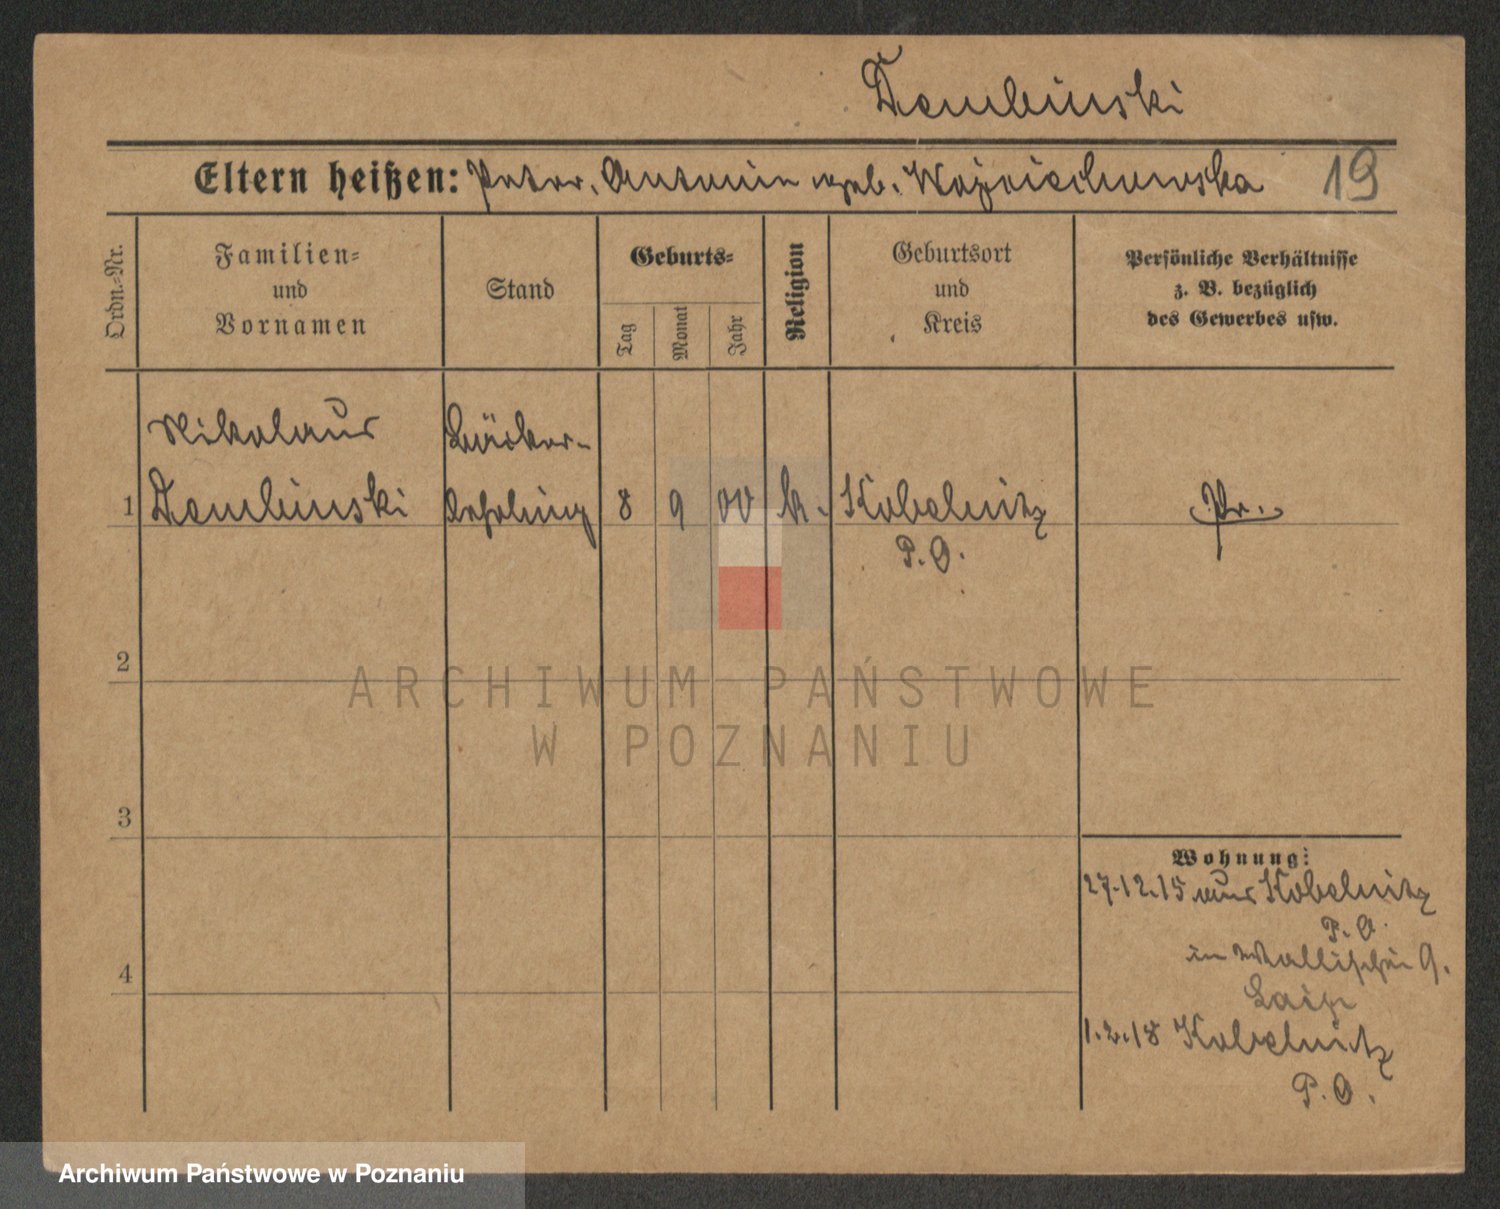 Dembinski
Eltern heißen: Peter, Antonie geb. Wojciechowska 19
Ordn.-Nr.
Familien-
und
Vornamen
Stand
Geburts-
Tag
Monat
Jahr
Religion
Geburtsort
und
Kreis
Persönliche Verhältnisse
z. B. bezüglich
des Gewerbes usw.
Nikolaus Bäcker-
1 Dembinski Lehrling 8 9 00 k. Kobelnitz Pr.
P. O.
2
ARCHIWUM PAŃSTWOWE
W POZNANIU
3
Wohnung:
27.12.15 aus Kobelnitz
P. O.
in Wallischei 9.
4
1.2.18 Kobelnitz
P. O.
Archiwum Państwowe w Poznaniu